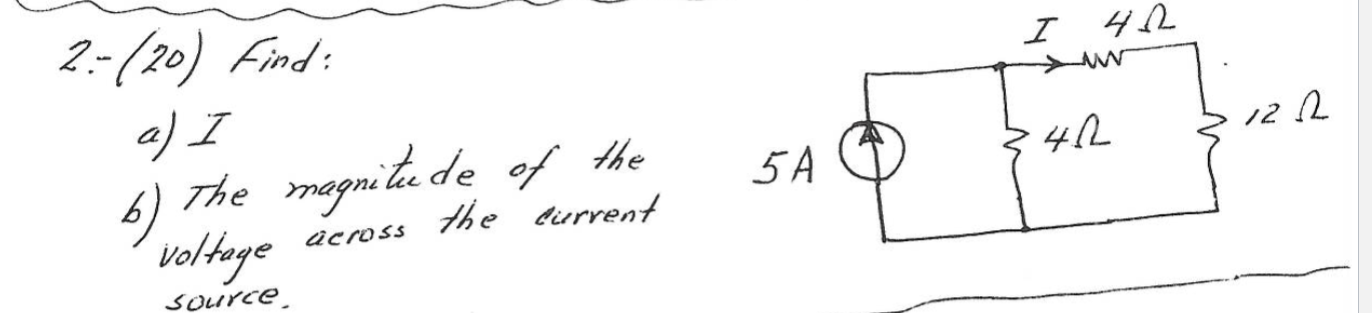 2.- (20) Find:
a) I
b) The magnitude of the
voltage across the current
source.
I 4Ω
5A
4Ω
12Ω